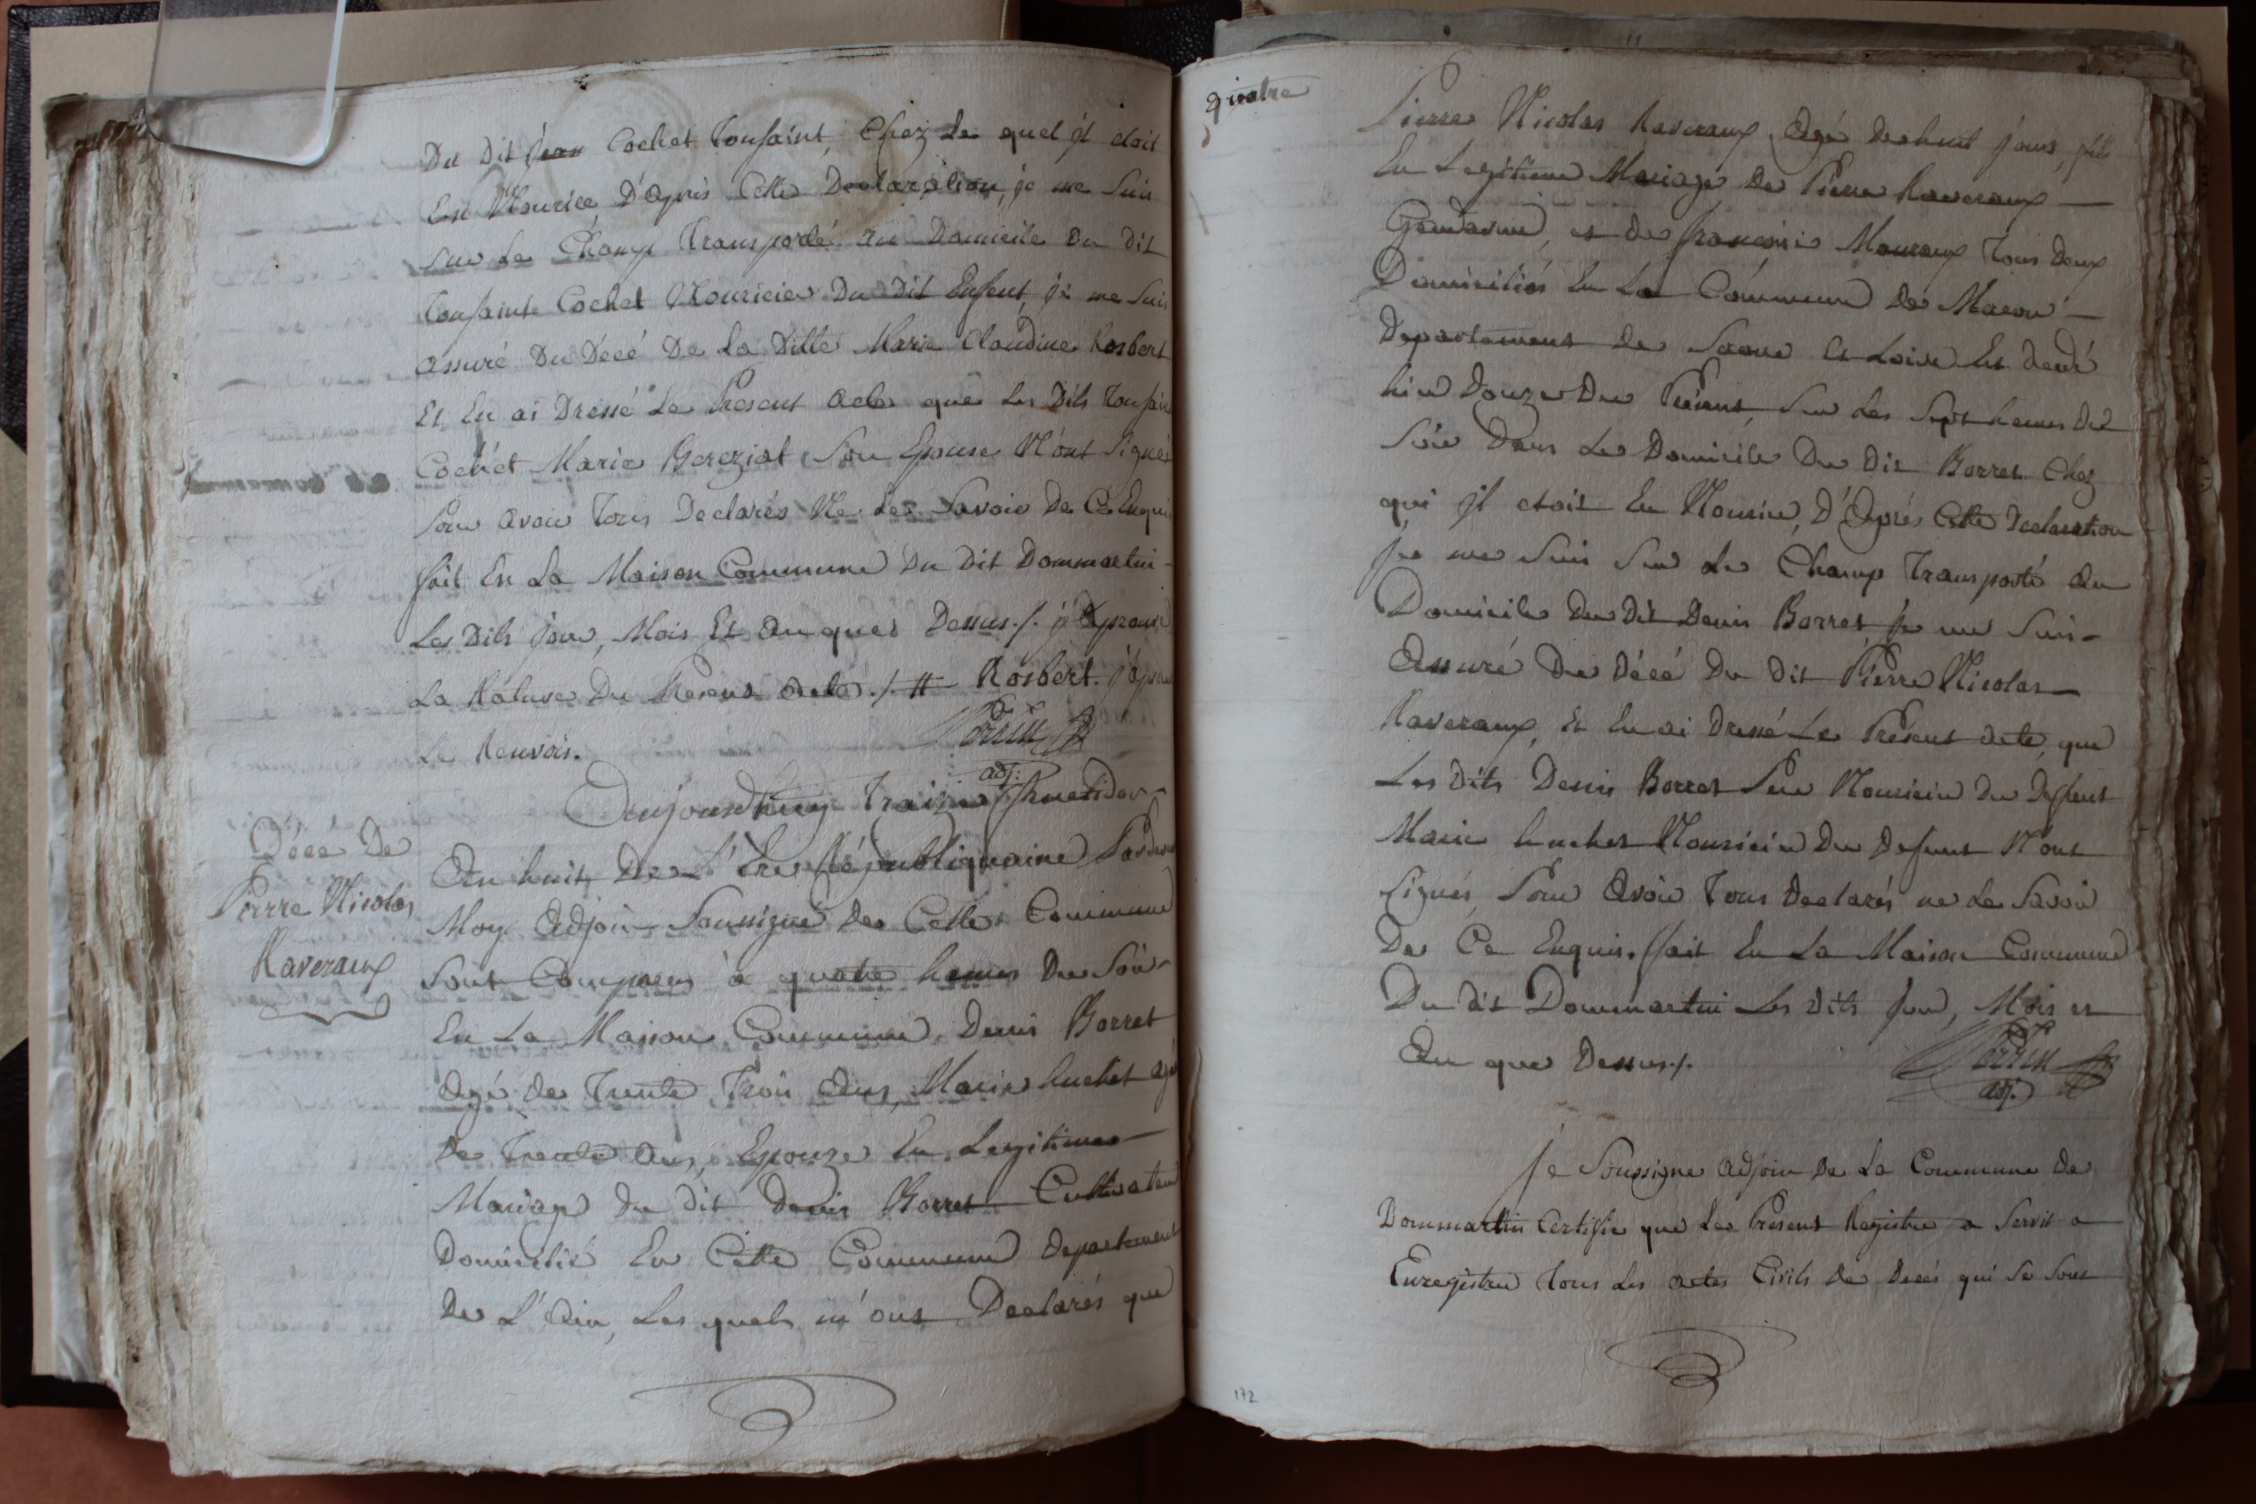 Du Dit Jean Cochet Tousaint, Chez Le quel jl etoit
En Nourice D'Apres Cette Declaration, je me Suis
Sur Le Champ Transporté au Domicile Du Dit
Tousaint Cochet Nouricier Du Dit Enfent, je me Suis
assuré Du Décé De La Ditte Marie Claudine Rosbert
Et En ai Dressé Le Present Acte que Les Dits Tousain
Cochet Marie Bereziat Son Epouse N'ont Signés
Pour Avoir Tous Declarés Ne Le Savoir De Ce Enquis
fait En La Maison Commune Du Dit Dommartin
Les Dits jour, Mois Et An que Dessus ./. j'Aprouve
La Rature Du Present Acte ./. # Rosbert. j'aprouve
Le Renvois.
Perrin
adj.
Décé De
Pierre Nicolas
Raveraux
Aujourdhuy Traize Thuermidor
An huit De L'Ere Républiquaine Pardevant
Moy Adjoin Soussigné De Cette Commune
Sont Comparus à quatre heures Du Soir
En La Maison Commune, Denis Borret
Agé de Trente Trois Ans, Marie huchet agé
De Trente Ans, Epouze En Legitimes
Mariage du dit Denis Borret Cultivateur
Domicilié En Cette Commune Departement
De L'Ain, Les quels m'ont Declarés que
quatre
Pierre Nicolas Raveraux Agé De huit jours, fils
En Legitime Mariage De Pierre Raveraux
Gendarme, et de françoise Mouraux Tous Deux
Domiciliés En La Commune De Macon
Departement De Saone Et Loire Est Decédé
hier Douze Du Présent, Sur Les Sept heures Du
Soir Dans Le Domicile Du Dit Borret Chez
qui jl etoit En Nourice, D'Après Cette Declaration
Je me Suis Sur Le Champ Transporté Au
Domicile Du Dit Denis Borret, je me Suis
Assuré De Décé Du Dit Pierre Nicolas
Raveraux, Et En ai Dressé Le Présent Acte, que
Les Dits Denis Borret Pere Nouricier Du Defunt
Marie huchet Nouricier Du Defunt N'ont
Signés, Pour Avoir Tous Declarés ne Le Savoir
De Ce Enquis. fait En La Maison Commune
Du dit Dommartin Les Dits Jour, Mois et
An que Dessus ./.
Perrin
adj.
Je Soussigne Adjoin De La Commune De
Dommartin Certifie que Le Present Registre a Servit a
Enregistrer Tous Les Actes Civils De Décés qui Se Sont
172